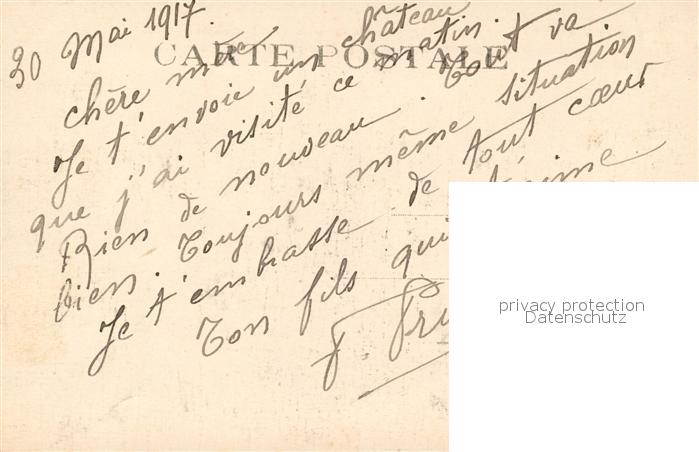 30 Mai 1917.
CARTE POSTALE
chère mère
Je t'envoie un château
que j'ai visité ce matin.
Rien de nouveau. Tout va
bien. Toujours même situation
Je t'embrasse de tout cœur
Ton fils qui t'aime
F.
privacy protection
Datenschutz